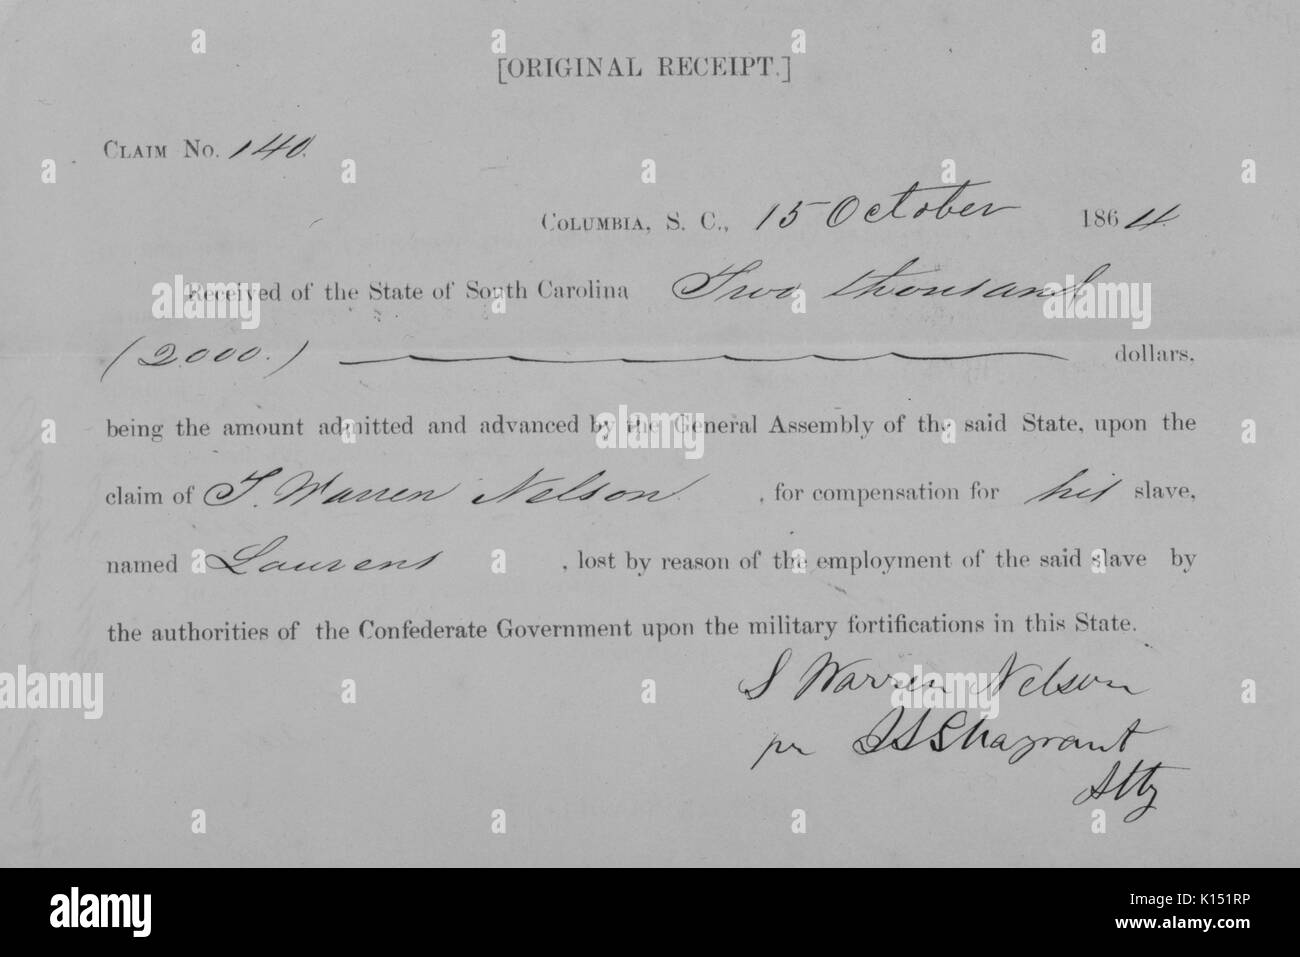 [ORIGINAL RECEIPT.]
CLAIM No. 140.
COLUMBIA, S. C., 15 October 1864.
Received of the State of South Carolina Two thousand
(2.000.) dollars,
being the amount admitted and advanced by the General Assembly of the said State, upon the
claim of T. Warren Nelson , for compensation for his slave,
named Laurens , lost by reason of the employment of the said slave by
the authorities of the Confederate Government upon the military fortifications in this State.
S Warren Nelson
pr
Atty
alamy stock photo
K151RP
www.alamy.com